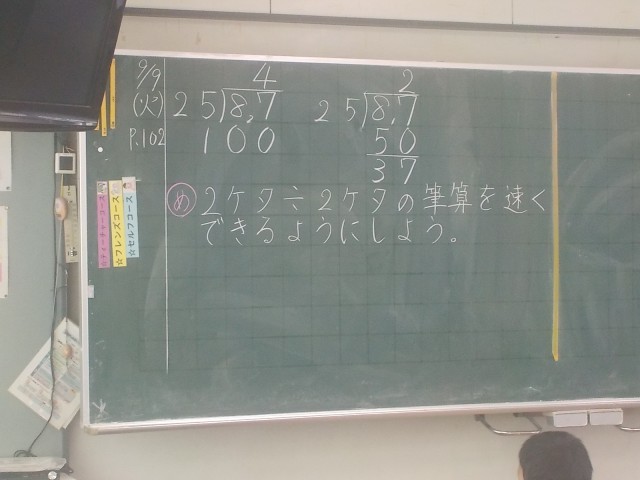 9/9
(火)
P.102
4
25)8,7
100
2
25)8,7
50
37
め 2ケタ÷2ケタの筆算を速く
できるようにしよう。
☆ティーチャーコース
☆フレンズコース
☆セルフコース